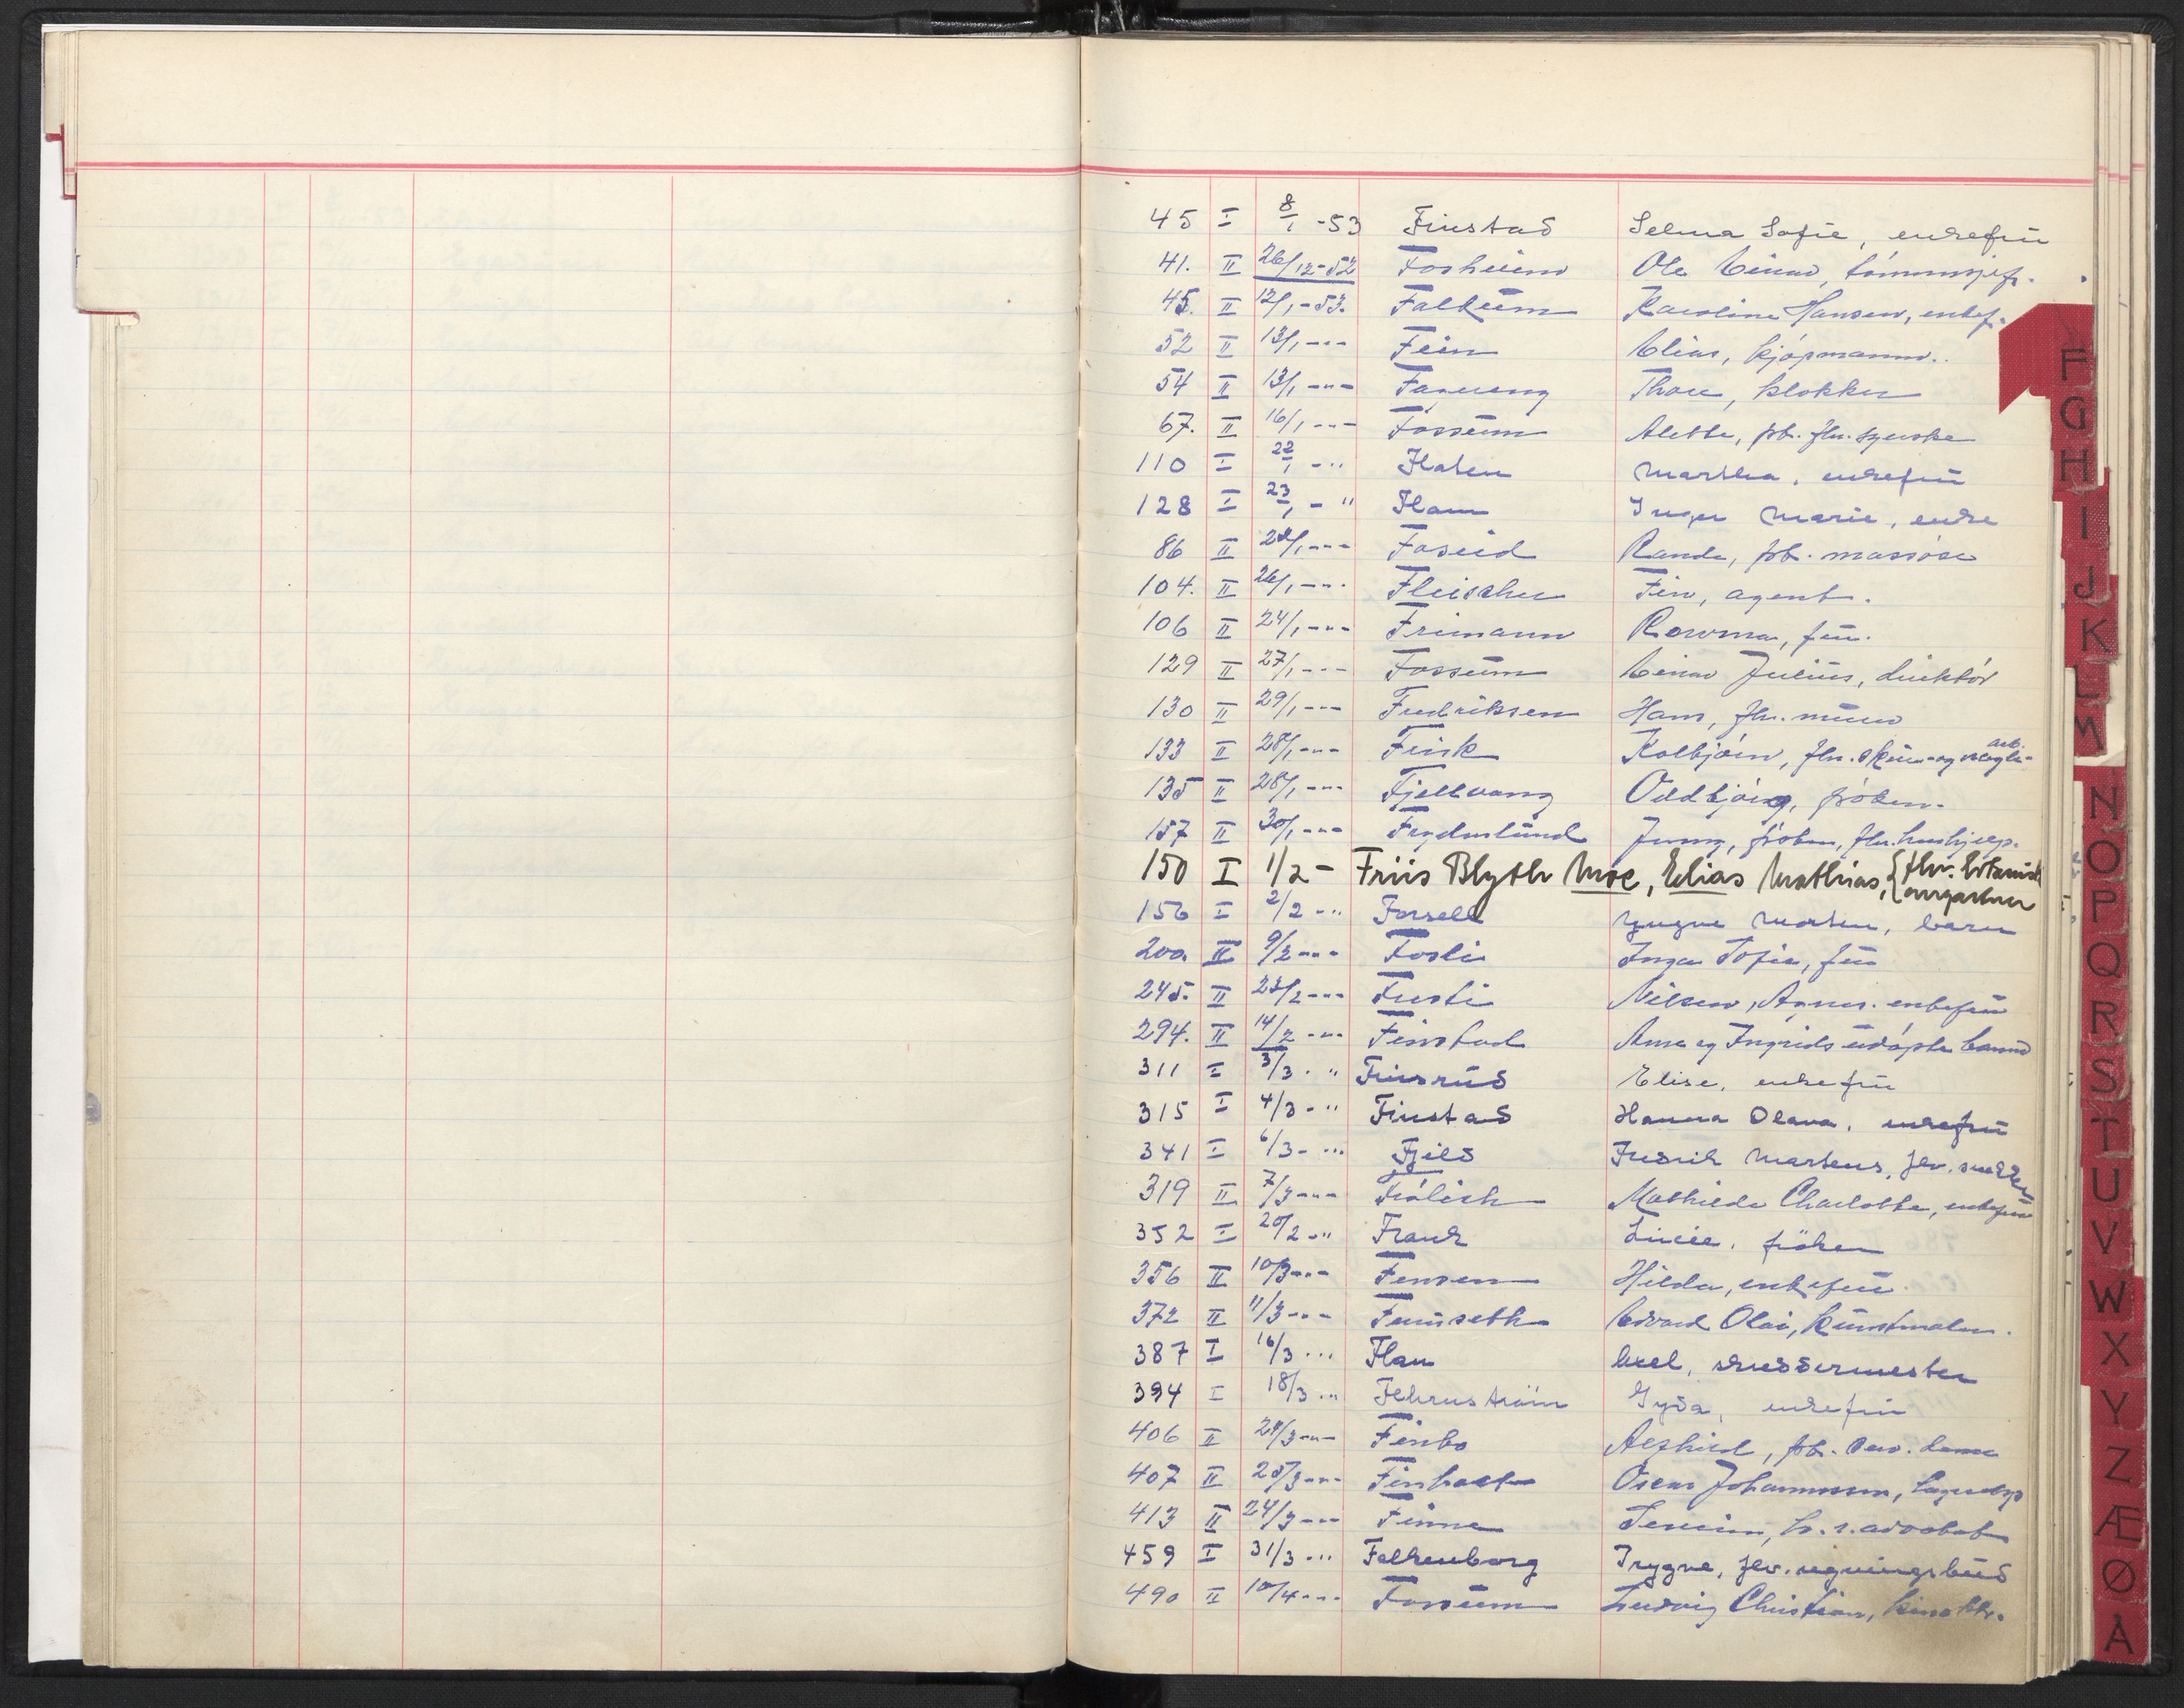 45 I 8/1 -53 Finstad Selma Sofie, enkefru
41. II 26/12-52 Fosheim Ole Einar,
45. II 12/1-53. Falkum Karoline Hansen, enkef.
52 II 13/1 -"- Fein Elias, kjøpmann.
54 II 13/1 -"- Fagereng Thore, klokker
67. II 16/1 -"- Fossum Alette, frk. fhv. syerske
110 I 22/1 -" Flaten Martha, enkefru
128 I 23/1 - " Flam Inger Marie, enke
86 II 24/1 -"- Foseid Randi, frk. massøse
104. II 26/1 -"- Fleischer Finn, agent.
106 II 24/1 -"- Frimann fru.
129 II 27/1 -"- Fossum Einar Julius, direktør
130 II 29/1 -"- Fredriksen Hans, fhv. murer
133 II 28/1 -"- Frisk Kolbjørn, fhv.
arb.
135 II 28/1 -"- Fjellvang Oddbjørg, frøken.
157 II 30/1 -"- Frydenlund Jenny, frøken, fhv. hushjelp.
150 I 1/2 - Friis Blyth Moe, Elias Mathias, { fhv. botanisk
156 I 2/2 -" Forsell Yngve Morten, barn
200 II 9/2 -"- Fosli Inga Sofie, fru
245. II 23/2 -"- Frusti Nilsen, Agnes. enkefru
294. II 14/2 -"- Finstad Arne og Ingrids udøpte barn
311 I 3/3 . " Finsrud Elise, enkefru
315 I 4/3 -" Finstad Hanna Olava, enkefru
341 I 6/3 - " Fjeld Fredrik Martens, fhv. snekker
319 II 7/3 -"- Frølich Mathilde Charlotte, enkefru
352 I 20/2 -" Frank Lucie, frøken
356 II 10/3 -"- Fensen Hilda, enkefru.
372 II 11/3 -"- Finnseth Edvard Olai, kunstmaler.
387 I 16/3 ... Flau Axel, skreddermester
394 I 18/3 -" Flehrustrøm Gyda, enkefru
406 II 24/3 -"- Finbo Alfhild, frk. serv. dame
407 II 25/3 -"- Finholt Oscar Johannesen,
413 II 24/3 -"- Finne h.r. advokat
459 I 31/3 -" Falkenborg Trygve, fhv. regningsbud
490 II 10/4 -"- Fossum Ludvig Christian,
F
G
H
I
J
K
L
M
N
O
P
Q
R
S
T
U
V
W
X
Y
Z
Æ
Ø
A